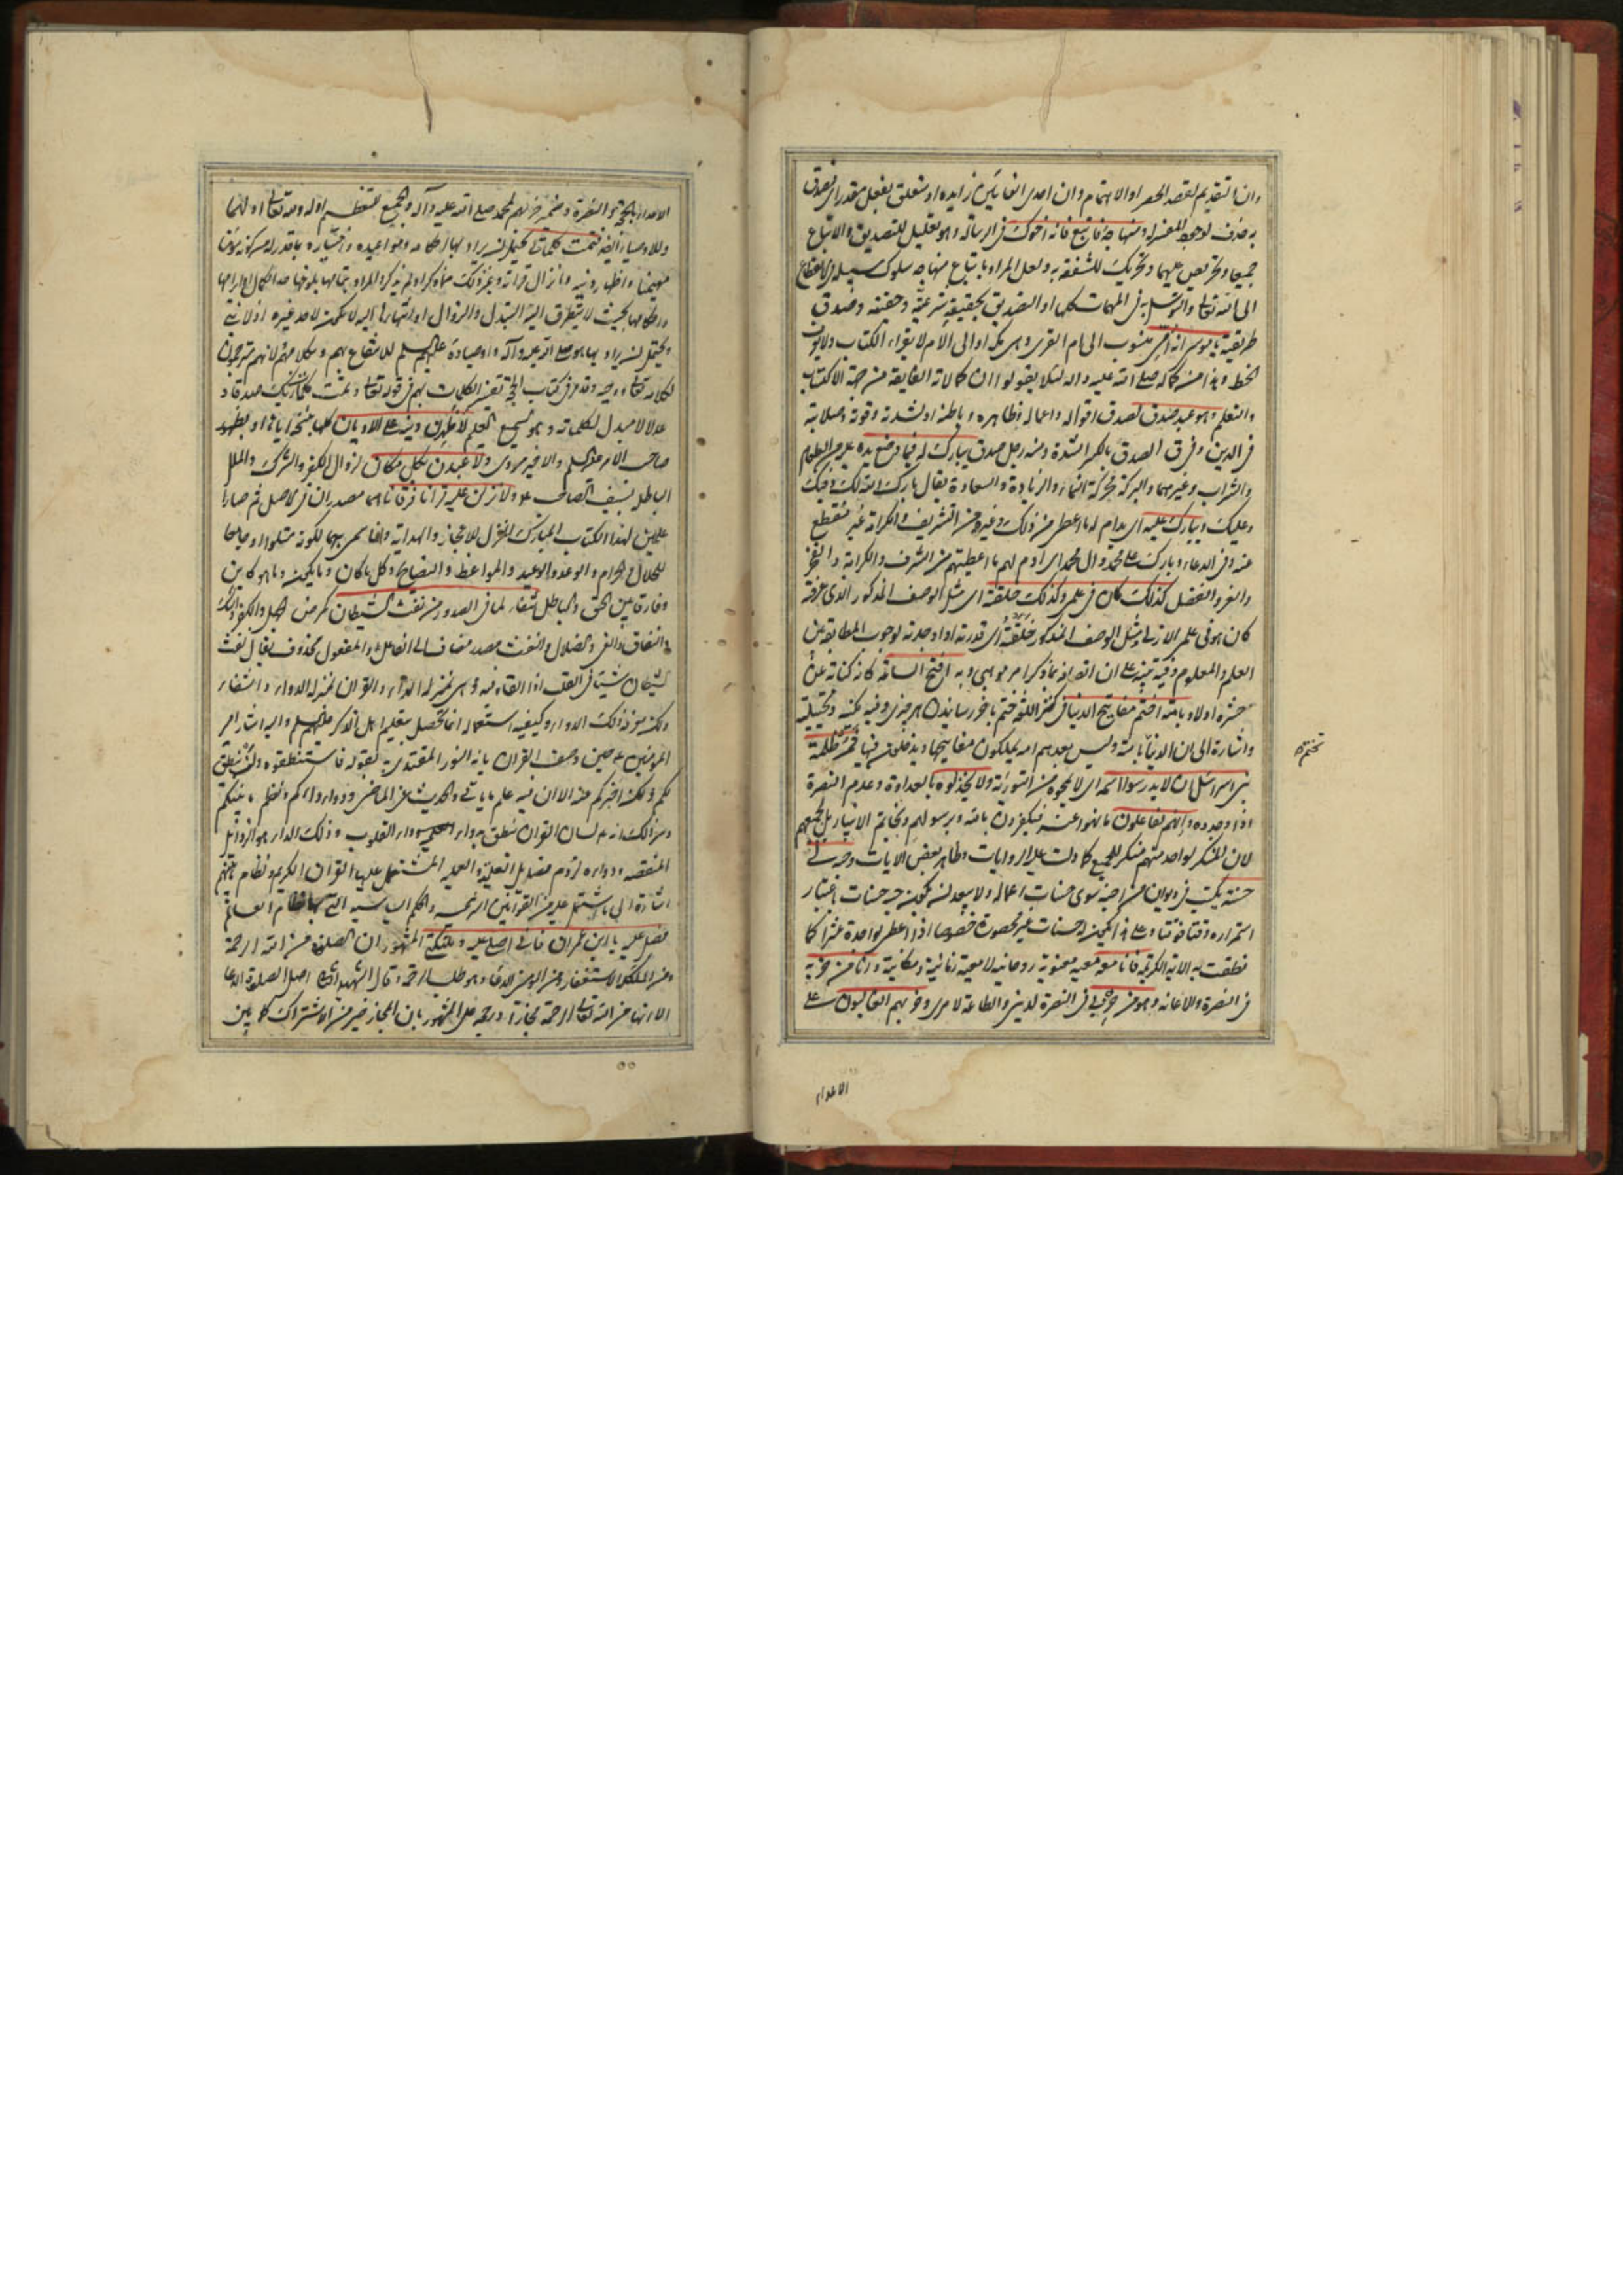 وانما التقديم لقصد الحصر او الاهتمام وان احدى الفائين زايدة او متعلق بفعل مقدر اى فصدق
به حذف لوجود المفسر له ومنهاجه فاتبع فانه اخوك فى الرسالة وهو تعليل للتصديق والاتباع
جميعا وتحريص عليهما وتحريك للشفقة به ولعل المراد باتباع منهاجه سلوك سبيله فى الانقطاع
الى الله تعالى والتوسل به فى المهمات كلها او التصديق بحقيقة شرعيته وحقيته وصدق
طريقته يا موسى انه امى منسوب الى ام القرى وهى مكة او الى الام لا يقراء الكتاب ولا
الخط وهذا من كماله صلى الله عليه واله لئلا يقولوا ان كمالاته الفايقة من جهة الاكتساب
والتعلم وهو عبد صدق لصدق اقواله واعماله وظاهره وباطنه او لشدته وقوته وصلابته
فى الدين وفى ق الصدق بالكسر الشدة ومنه رجل صدق يبارك له فيما وضع يده عليه من الطعام
والشراب وغيرهما والبركة محركة النماء والزيادة والسعادة يقال بارك الله لك وفيك
وعليك ويبارك عليه اى يدام له ما اعطى من ذلك وغيره من التشريف والكرامة غير منقطع
عنه وفى الدعاء وبارك على محمد وال محمد اى ادم لهم ما اعطيتهم من الشرف والكرامة والفخر
والعز والفضل كذلك كان فى علمى وكذلك خلقته اى مثل الوصف المذكور الذى عرفته
كان هو فى علمى الازلى ومثل الوصف المذكور خلقته اى قدرته او اوجدته لوجوب المطابقة بين
العلم والمعلوم وفيه تنبيه على ان اتصافه بما ذكر امر موهبى وبه افتح الساعة كانه كناية عن
حشره اولا وبامته اختم مفاتيح الدنيا فى كنز اللغة ختم باخر رسانيدن هر چيزى وفيه مكنية وتخييلية
واشارة الى ان الدنيا بامته وليس بعدهم امة يملكون مفاتيحها ويدخلون فيها فمر ظلمة
بنى اسرائيل ان لا يدرسوا اسمه اى لا يمحوه من التورية ولا يخذلوه بالعداوة وعدم النصرة
اذا وجدوه وانهم لفاعلون ما نهوا عنه فيكفرون بالله وبرسولهم وبخاتم الانبياء بل بجميعهم
لان المنكر لواحد منهم منكر للجميع كما دلت عليه الروايات وظاهر بعض الايات وحبه لى
حسنة يكتب فى ديوان من احبه سوى حسنات اعماله ولا يبعد ان يكون حبه حسنات باعتبار
استمراره وقتا فوقتا وعلى هذا يكون له حسنات غير محصورة خصوصا اذا اعطى بواحدة عشرا كما
نطقت به الاية الكريمة فانا معه معية معنوية روحانية لا معية زمانية ومكانية وانا من حزبه
فى النصرة والاعانة وهو من حزبى فى النصرة لدينى والطاعة لامرى وحزبهم الغالبون على
تختم
الاعداء
الاعداء بالحجة والنصرة وضمير حزبهم لمحمد صلى الله عليه وآله والجمع للتعظيم او له ولله تعالى او لهما
وللاوصياء ايضا فتمت كلماتى يحتمل ان يراد بها احكامه ومواعيده واخباره
وانزال قرآنه وغير ذلك مما ذكر او لم يذكر والمراد بتمامها بلوغها حد الكمال
واحكامها بحيث لا يتطرق اليه التبدل والزوال
ويحتمل ان يراد بها هو صلى الله عليه وآله واوصياءه عليهم السلم للانتفاع بهم وبكلامهم لانهم مترجمون
لكلامه تعالى ووحيه وقد مر فى كتاب الحجة تفسير الكلمات بهم فى قوله تعالى وتمت كلمات ربك صدقا و
عدلا لا مبدل لكلماته وهو السميع العليم لاظهرن دينه على الاديان كلها بنسخه اياها او بظهور
صاحب الامر عليه السلم والاخير مروى ولا عبدن بكل مكان لزوال الكفر والشرك والملل
الباطلة بسيف الصاحب ع ولانزلن عليه قرآنا فرقانا هما مصدران فى الاصل ثم صارا
علمين لهذا الكتاب المبارك المنزل للاعجاز والهداية وانما سمى بهما لكونه متلوا وجامعا
للحلال والحرام والوعد والوعيد والمواعظ والنصايح وكل ما كان وما يكون وما هو كاين
وفارقا بين الحق والباطل شفاء لما فى الصدور من نفث الشيطان كمرض الجهل والكفر والشك
والنفاق والغى والضلال والنفث مصدر مضاف الى الفاعل والمفعول محذوف يقال نفث
الشيطان شيئا فى القلب اذا القاه فيه وهى بمنزلة الداء والقرآن بمنزلة الدواء والشفاء
ولكن معرفة ذلك الدواء وكيفية استعماله انما تحصل بتعليم اهل الذكر عليهم السلم واليه اشار امير
المؤمنين ع حين وصف القران بانه النور المقتدى به بقوله فاستنطقوه ولن ينطق
لكم ولكن اخبركم عنه الا ان فيه علم ما ياتى والحديث عن الماضى ودواء دائكم ونظم ما بينكم
المنقصة ودواءه لزوم فضايل العلمية والعملية المشتمل عليها القرآن الكريم ونظام ما بينهم
اشارة الى ما يشتمل عليه من القوانين الشرعية والحكم السياسية التى بها نظام العالم
فصل عليه يا ابن عمران فانى اصلى عليه وملائكتى المشهور ان الصلوة من الله الرحمة
ومن الملائكة الاستغفار ومن المؤمنين الدعاء وهو طلب الرحمة وقال الشهيد الثانى اصل الصلوة الدعاء
الا انها من الله تعالى الرحمة مجازا ورجحه على المشهور بان المجاز خير من الاشتراك كما بين